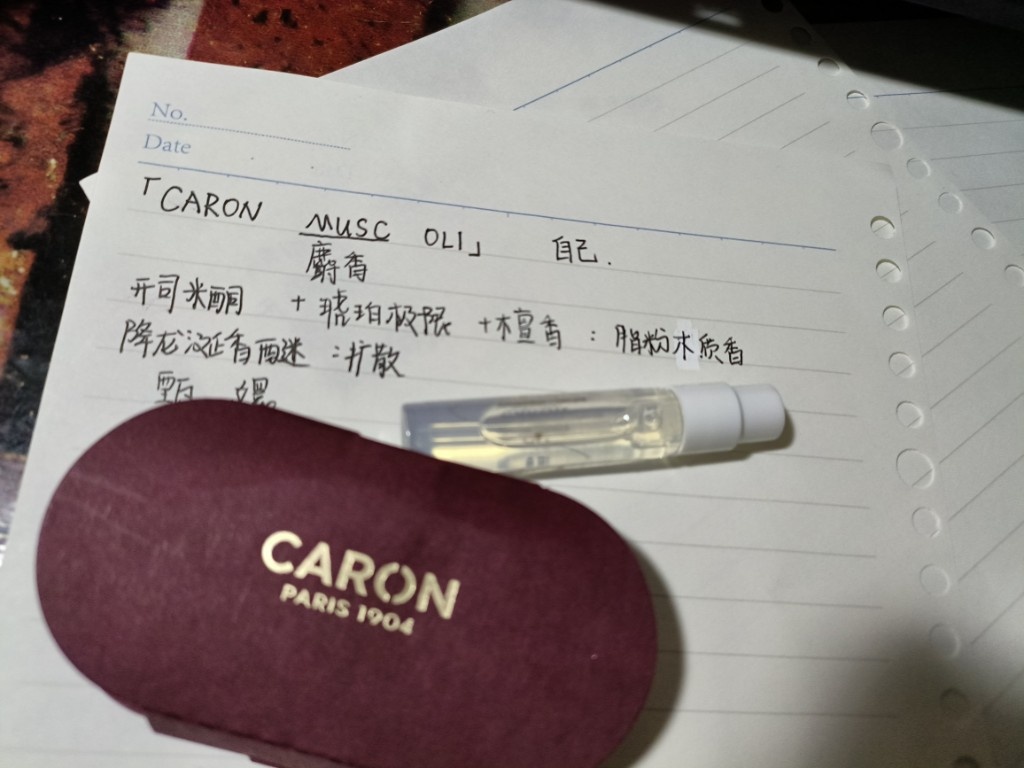 No.
Date
「CARON MUSC OLI」 自己.
麝香
开司米酮 + 琥珀极限 + 檀香 : 脂粉木质香
降龙涎香醚 : 扩散
CARON
PARIS 1904